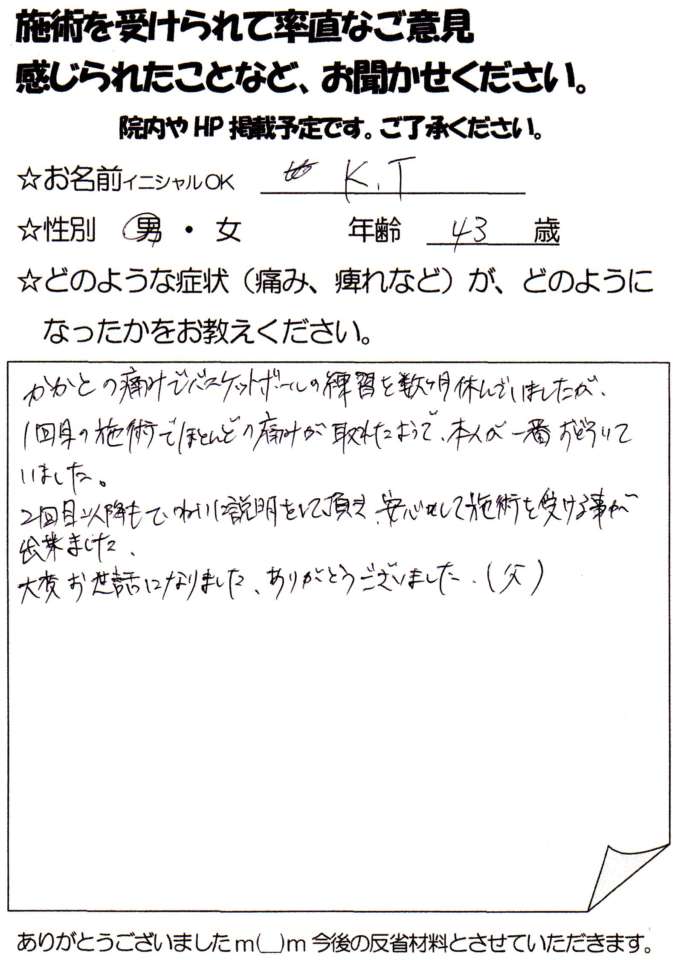 施術を受けられて率直なご意見
感じられたことなど、お聞かせください。
院内やHP掲載予定です。ご了承ください。
☆お名前イニシャルOK K.T
☆性別 男・女 年齢 43 歳
☆どのような症状（痛み、痺れなど）が、どのように
なったかをお教えください。
かかとの痛みでバスケットボールの練習を数ヶ月休んでいましたが、
1回目の施術でほとんどの痛みが取れたようで、本人が一番おどろいて
いました。
2回目以降もていねいに説明をして頂き、安心して施術を受ける事が
出来ました。
大変お世話になりました、ありがとうございました.(父)
ありがとうございましたm(__)m今後の反省材料とさせていただきます。